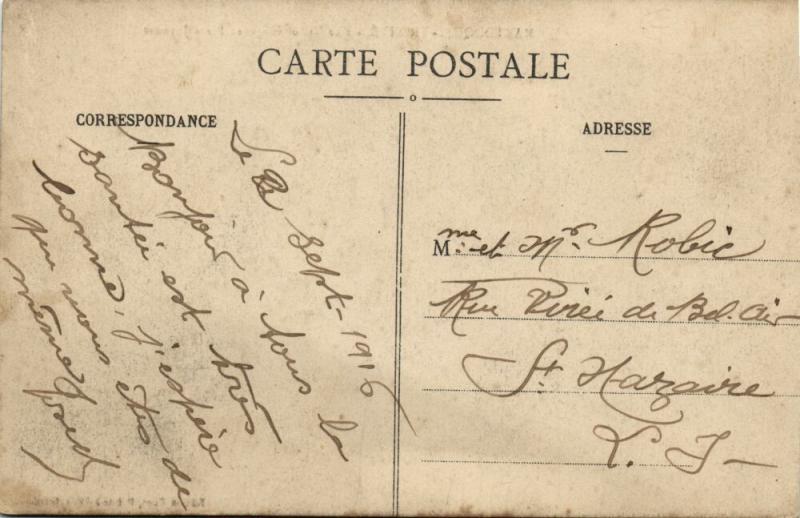 CARTE POSTALE
CORRESPONDANCE
Le 2 sept - 1916
Bonjour à tous la
santée est très
bonne, j'espère
que vous êtes de
même Fred
ADRESSE
Mme et Mr. Robic
Rue de Bel. Air
St. Nazaire
L. I -